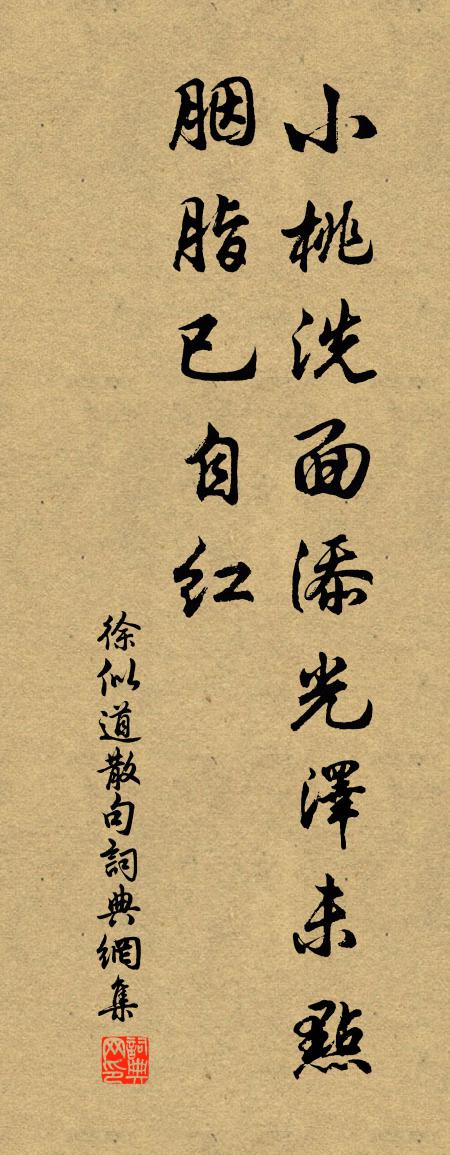 小桃洗面添光澤未點
胭脂已自红
徐似道散句詞典網集
詞典网印